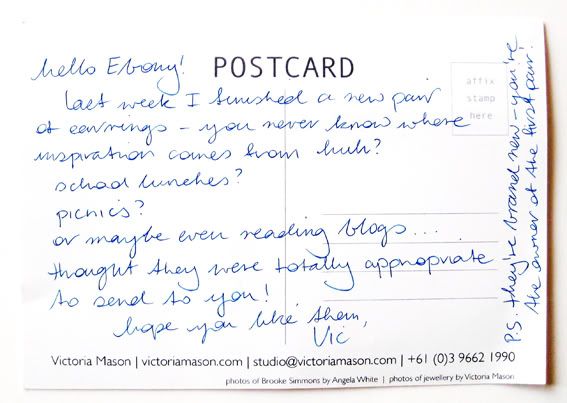 hello Ebony!
POSTCARD
last week I finished a new pair
of earrings - you never know where
inspiration comes from huh?
school lunches?
picnics?
or maybe even reading blogs...
thought they were totally appropriate
to send to you!
hope you like them,
Vic
affix
stamp
here
P.S. they're brand new - you're
the owner of the first pair!
Victoria Mason | victoriamason.com | studio@victoriamason.com | +61 (0)3 9662 1990
photos of Brooke Simmons by Angela White | photos of jewellery by Victoria Mason